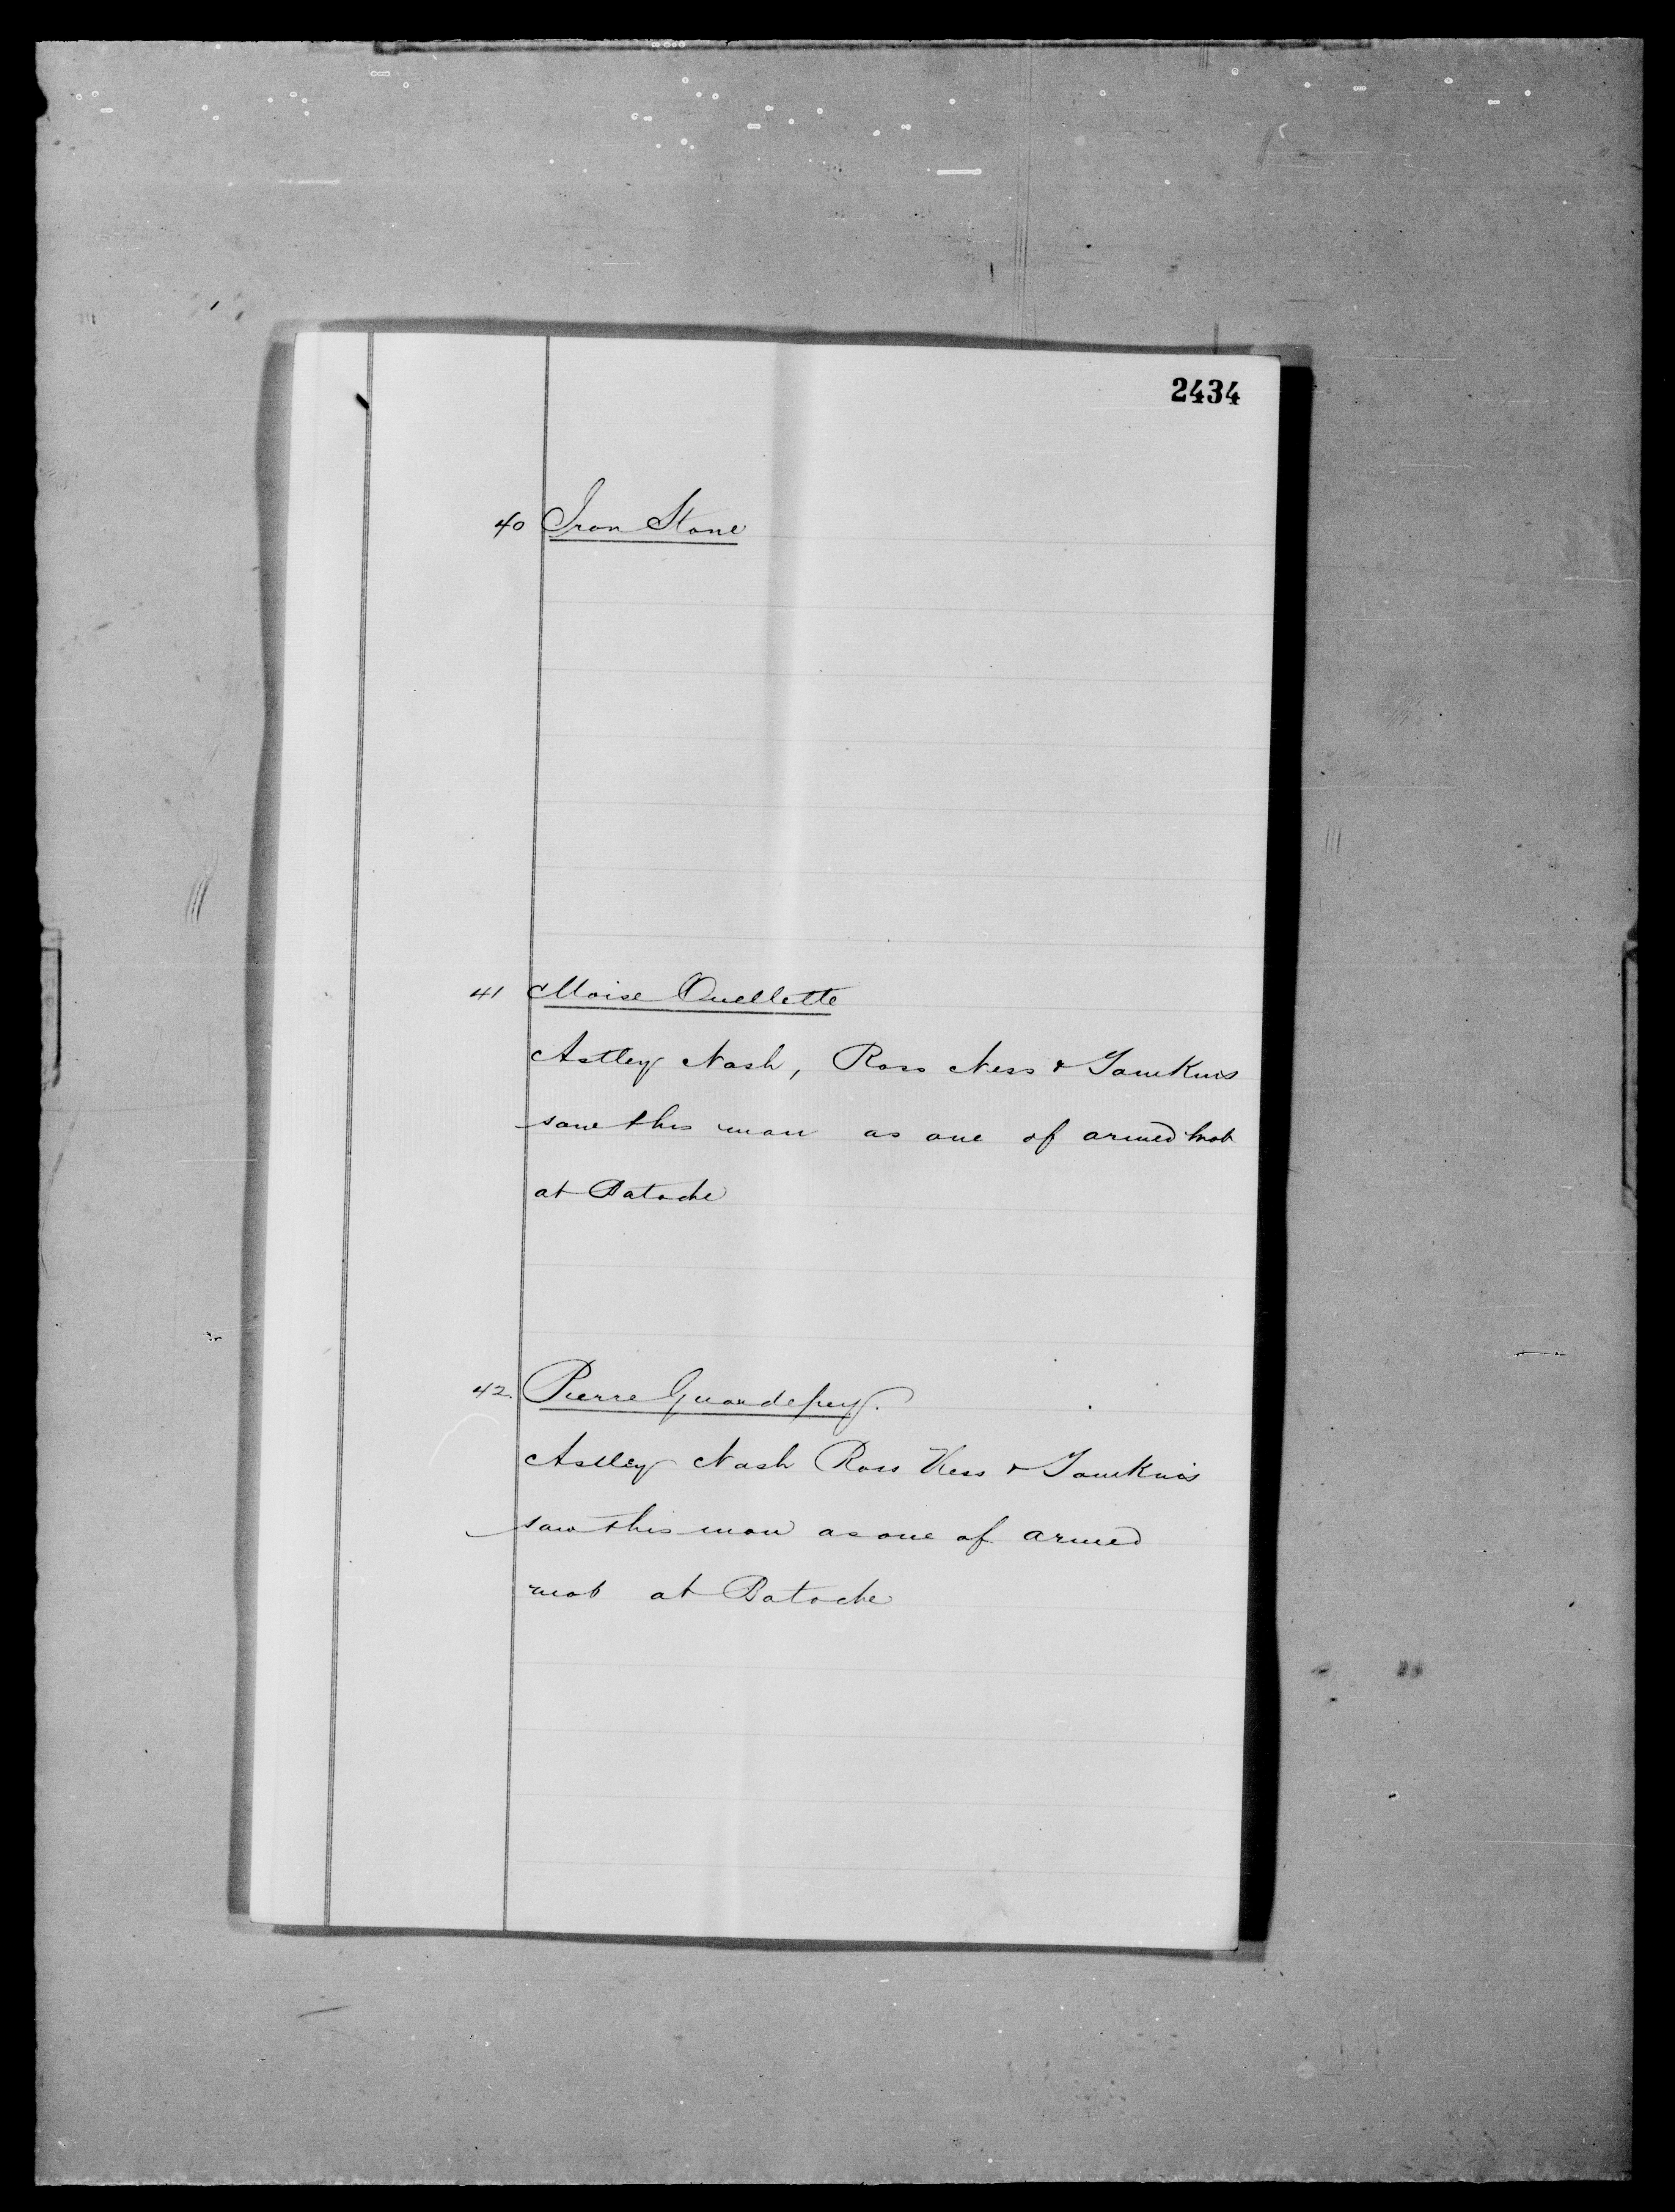 2434
40 Iron Stone
41 Moise Ouellette
Astley Nash, Ross Ness & Tomkins
saw this man as one of armed mob
at Batoche
42. Pierre Guardepuy.
Astley Nash Ross Ness & Tomkins
saw this man as one of armed
mob at Batoche